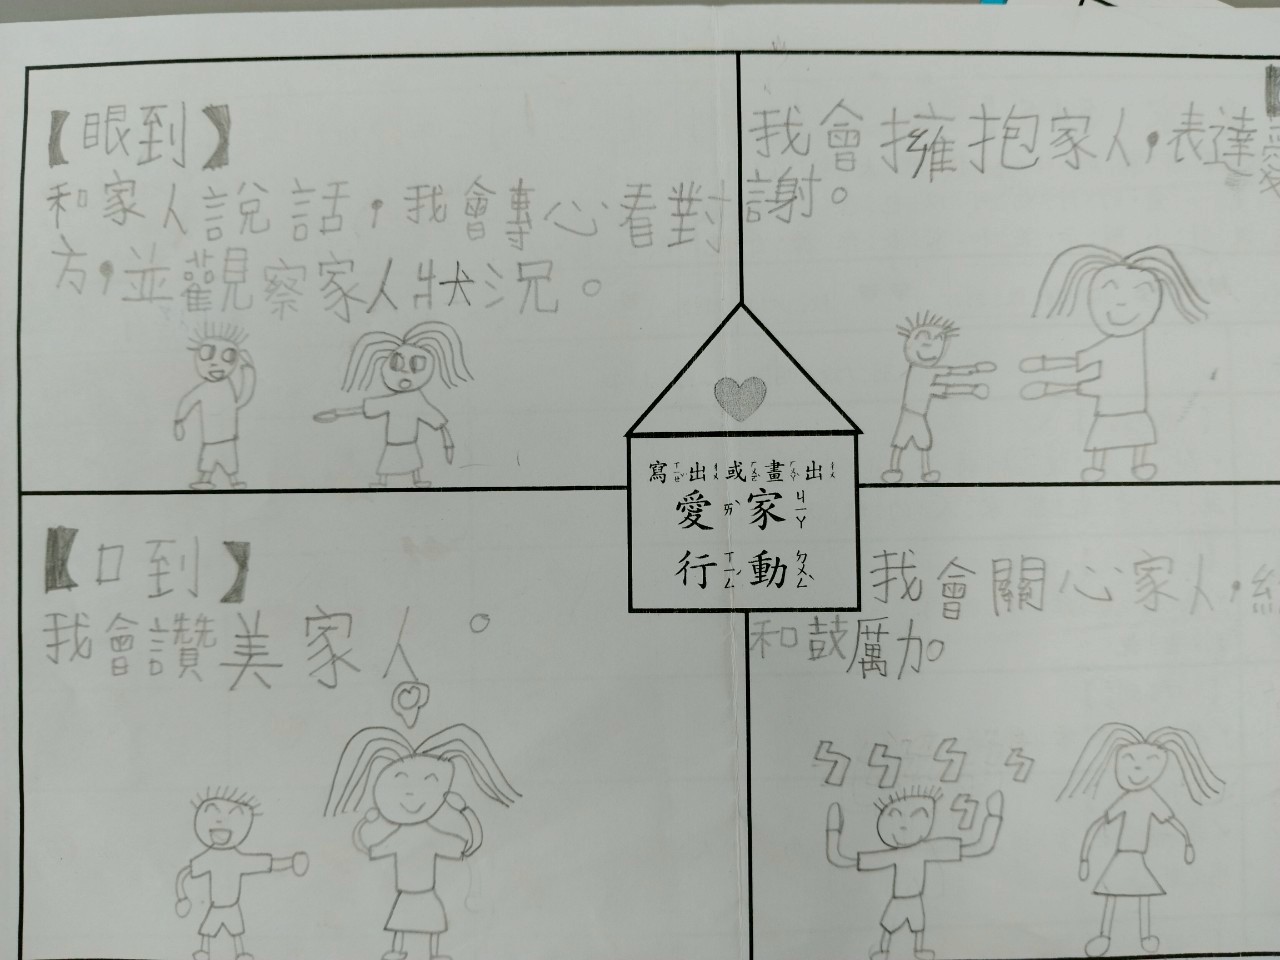 【眼到】
和家人說話，我會專心看對
方，並觀察家人狀況。
我會擁抱家人，表達愛
謝。
寫出或畫出
愛家
行動
【口到】
我會讚美家人。
我會關心家人，給
和鼓厲加。